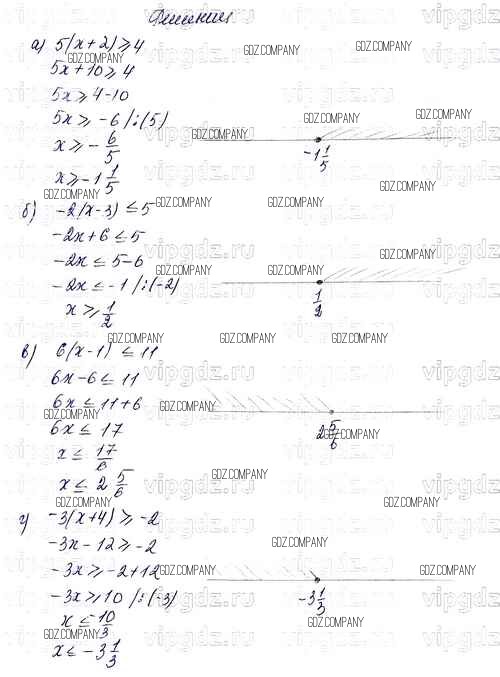 Решения
а) 5(x+2) ⩾ 4
5x+10 ⩾ 4
5x ⩾ 4-10
5x ⩾ -6 /:(5)
x ⩾ - 6/5
x ⩾ -1 1/5
-1 1/5
б) -2(x-3) ≤ 5
-2x+6 ≤ 5
-2x ≤ 5-6
-2x ≤ -1 /:(-2)
x ⩾ 1/2
1/2
в) 6(x-1) ≤ 11
6x-6 ≤ 11
6x ≤ 11+6
6x ≤ 17
x ≤ 17/6
x ≤ 2 5/6
2 5/6
г) -3(x+4) ⩾ -2
-3x-12 ⩾ -2
-3x ⩾ -2+12
-3x ⩾ 10 /:(-3)
x ≤ -10/3
x ≤ -3 1/3
-3 1/3
GDZ.COMPANY
vipgdz.ru